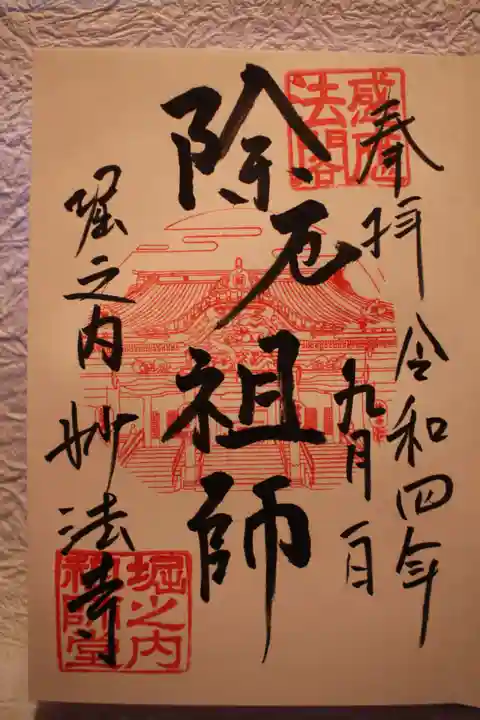 奉拝 令和四年
九月一日
除厄祖師
堀之内 妙法寺
感應法閣
堀之内祖師堂